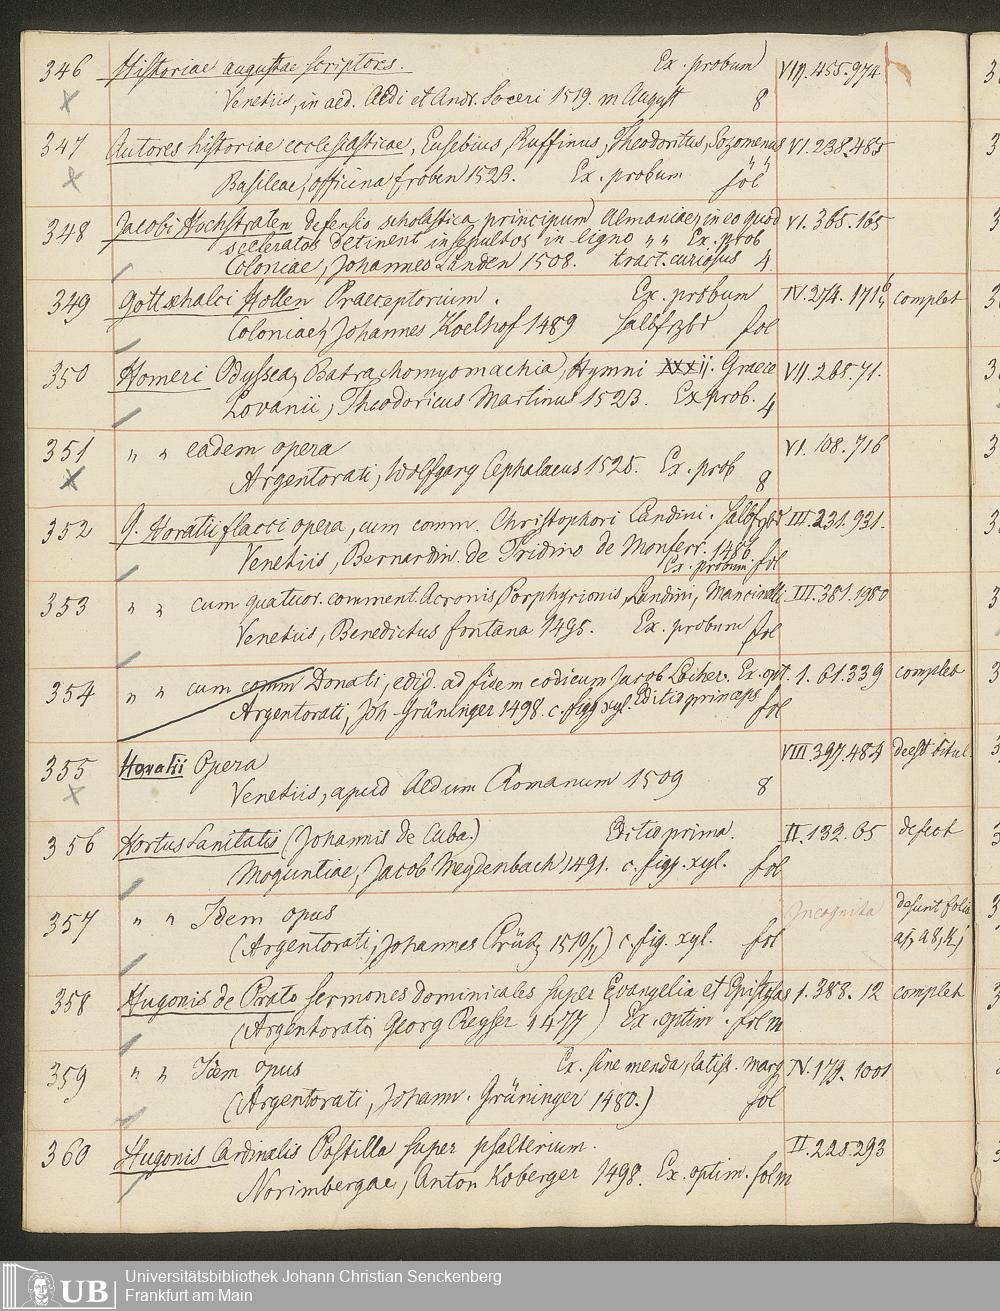 346 Historiae augustae scriptores. Ex. probum VIII. 455. 974
Venetiis, in aed. Aldi et Andr. Soceri 1519. m August 8
347 Autores historiae ecclesiasticae, Eusebius, Ruffinus, Theodoritus, Sozomenus VI. 238. 485
Basileae, officina Froben 1523. Ex. probum fol
348 Jacobi Hochstraten defensio scholastica principum Almaniae, in eo quod VI. 365. 165
sceleratos detinent insepultos in ligno „ „ Ex. prob
Coloniae, Johannes Landen 1508. tract. curiosus 4
349 Gottschalci Hollen Praeceptorium. Ex. probum IV. 274. 171 complet
Coloniae, Johannes Koelhof 1489 halbfrzbd fol
350 Homeri Odyssea, Batrachomyomachia, Hymni XXXII. Graece VII. 265. 71.
Lovanii, Theodoricus Martinus 1523. Ex prob. 4
351 „ „ eadem opera VI. 108. 716
Argentorati, Wolfgang Cephalaeus 1525. Ex. prob 8
352 Q. Horatii flacci opera, cum comm. Christophori Landini. halbfrzbd III. 231. 931.
Venetiis, Bernardin. de Tridino de Monferr. 1486. fol
Ex. probum.
353 „ „ cum quatuor. comment. Acronis, Porphyrionis, Landini, Mancinelli III. 381. 1980
Venetiis, Benedictus fontana 1495. Ex. probum fol
354 „ „ cum comm Donati, edid. ad fidem codicum Jacob Locher. Ex. opt. 1. 61. 339 complet
Argentorati, Joh. Grüninger 1498. c. figg xyl. Editio princeps fol
355 Horatii Opera VIII. 397. 484 deest titul.
Venetiis, apud Aldum Romanum 1509 8
356 Hortus Sanitatis (Johannis de Cuba.) Editio prima. II. 132. 65 defect
Moguntiae, Jacob Meydenbach 1491. c. figg. xyl. fol
357 „ „ Idem opus Incognita desunt folia
(Argentorati, Johannes Prüss, ) c. fig. xyl. fol
358 Hugonis de Prato Sermones dominicales super Evangelia et Epistolas 1. 388. 12 complet
(Argentorati Georg Reyser 1477) Ex. optim. fol m
359 „ „ Idem opus Ex. sine menda, latiss. marg IV. 179. 1001
(Argentorati, Johann. Grüninger 1480.) fol
360 Hugonis Cardinalis Postilla super psalterium. II. 225. 293
Norimbergae, Anton Koberger 1498. Ex. optim. fol m
UB Universitätsbibliothek Johann Christian Senckenberg
Frankfurt am Main